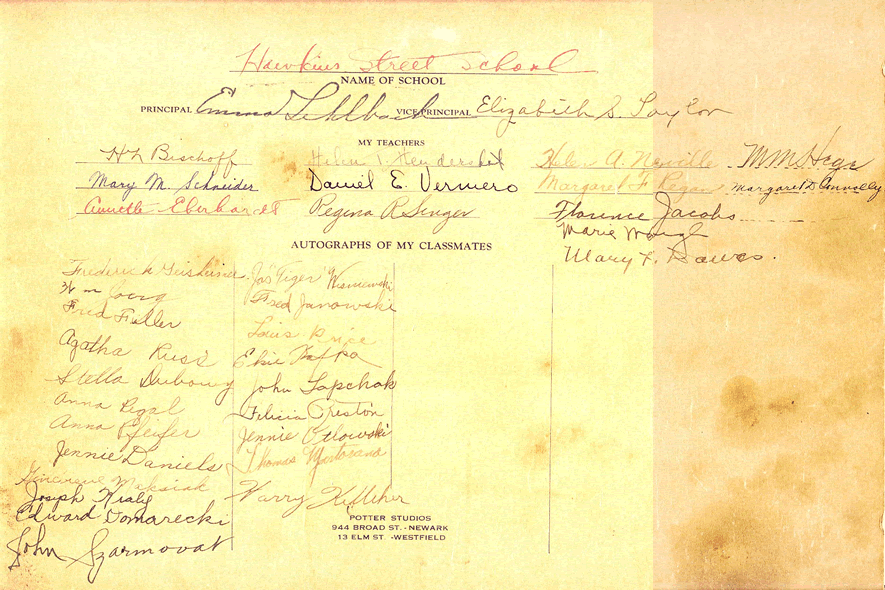 Hawkins Street School
NAME OF SCHOOL
PRINCIPAL Emma Lehlbach VICE PRINCIPAL Elizabeth S. Taylor
MY TEACHERS
Bischoff
Mary M. Schneider
Annette Eberhardt
Helen
Daniel E. Vermero
Regina R Singer
Helen A. Neville
Margaret F Regan
Florence Jacobs
Marie
Mary F. Dawes.
Margaret D Connolly
AUTOGRAPHS OF MY CLASSMATES
Frederick
Fred Fuller
Agatha Russ
Stella Dubowy
Anna Rygal
Anna Pfeifer
Jennie Daniels
Genevieve Maksiak
Joseph
Edward Domarecki
John Szarmovat
Jos "Tiger" Wisniewski
Fred Janowski
Louis Price
Elsie Kafka
John Lapchak
Felicia Preston
Jennie Orlowski
Thomas Martorana
Harry Kelleher
POTTER STUDIOS
944 BROAD ST. - NEWARK
13 ELM ST. - WESTFIELD